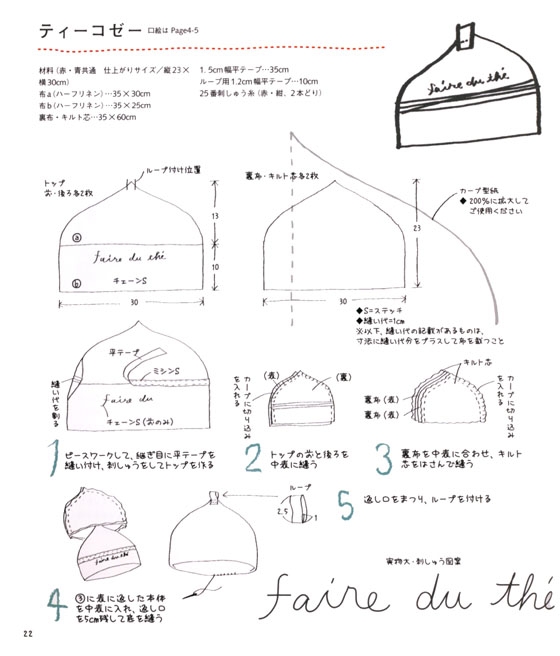 ティーコゼー 口絵は Page4-5
材料(赤・青共通 仕上がりサイズ/縦23×
横30cm)
布a(ハーフリネン)…35×30cm
布b(ハーフリネン)…35×25cm
裏布・キルト芯…35×60cm
1.5cm幅平テープ…35cm
ループ用1.2cm幅平テープ…10cm
25番刺しゅう糸(赤・紺、2本どり)
faire du thé
トップ
前・後ろ各2枚
ループ付け位置
ⓐ
faire du thé
ⓑ
チェーンS
13
10
30
裏布・キルト芯各2枚
23
30
カーブ型紙
◆200%に拡大して
ご使用ください
◆S=ステッチ
◆縫い代=1cm
※以下、縫い代の記載があるものは、
寸法に縫い代分をプラスして布を裁つこと
平テープ
ミシンS
縫い代を割る
faire du
チェーンS(前のみ)
1 ピースワークして、継ぎ目に平テープを
縫い付け、刺しゅうをしてトップを作る
カーブに切り込み
を入れる
(表)
(裏)
2 トップの前と後ろを
中表に縫う
キルト芯
裏布(表)
裏布(裏)
カーブに切り込み
を入れる
3 裏布を中表に合わせ、キルト
芯をはさんで縫う
faire du thé
4 ③に表に返した本体
を中表に入れ、返し口
を5cm残して底を縫う
ループ
2.5
1
5 返し口をまつり、ループを付ける
実物大・刺しゅう図案
faire du thé
22